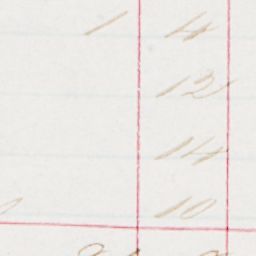 1 4
12
14
10